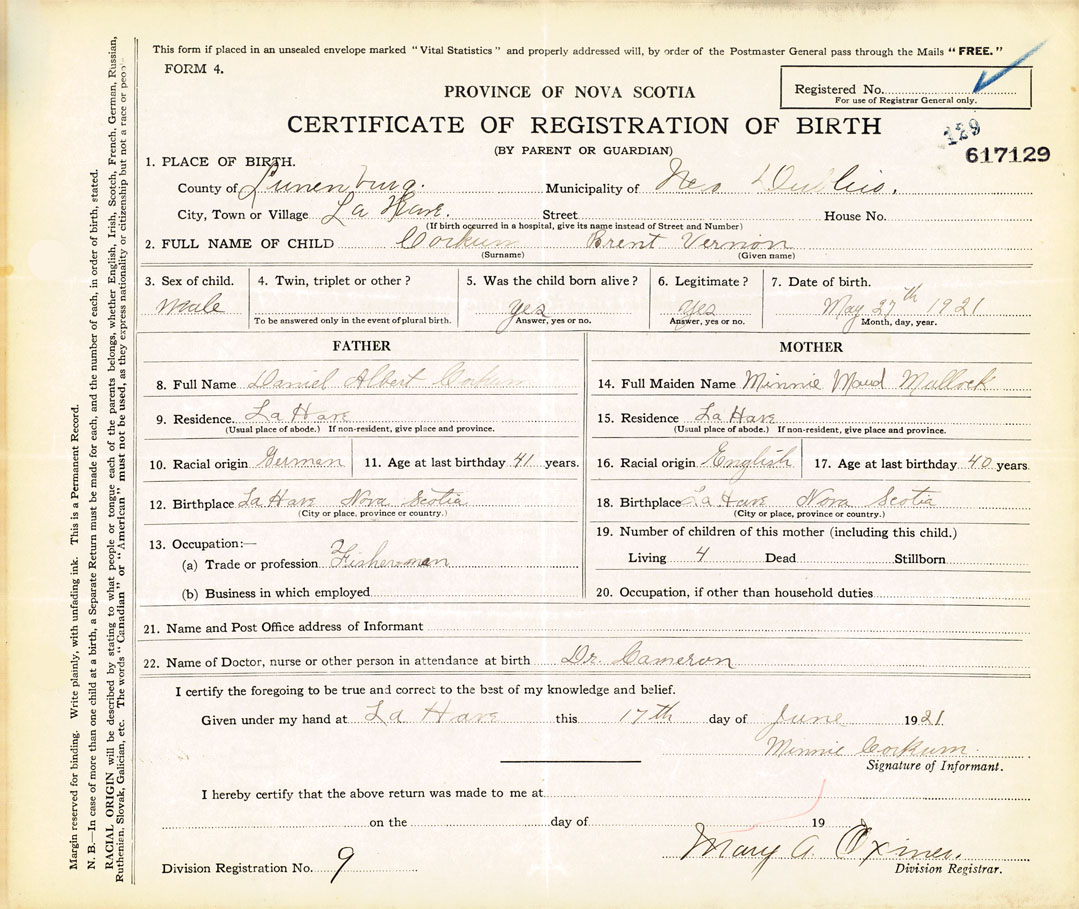 This form if placed in an unsealed envelope marked "Vital Statistics" and properly addressed will, by order of the Postmaster General pass through the Mails "FREE."
FORM 4.
Registered No.
For use of Registrar General only.
PROVINCE OF NOVA SCOTIA
CERTIFICATE OF REGISTRATION OF BIRTH
(BY PARENT OR GUARDIAN)
129
617129
1. PLACE OF BIRTH.
County of Lunenburg. Municipality of New Dublin.
City, Town or Village La Have. Street House No.
(If birth occurred in a hospital, give its name instead of Street and Number)
2. FULL NAME OF CHILD Corkum Brent Vernon
(Surname) (Given name)
3. Sex of child. 4. Twin, triplet or other? 5. Was the child born alive? 6. Legitimate? 7. Date of birth.
male yes yes May 27th 1921
To be answered only in the event of plural birth. Answer, yes or no. Answer, yes or no. Month, day, year.
FATHER
8. Full Name Daniel Albert Corkum
9. Residence. La Have
(Usual place of abode.) If non-resident, give place and province.
10. Racial origin German 11. Age at last birthday 41 years.
12. Birthplace La Have Nova Scotia
(City or place, province or country.)
13. Occupation:—
(a) Trade or profession Fisherman
(b) Business in which employed
MOTHER
14. Full Maiden Name Minnie Maud Mullock
15. Residence La Have
(Usual place of abode.) If non-resident, give place and province.
16. Racial origin English 17. Age at last birthday 40 years.
18. Birthplace La Have Nova Scotia
(City or place, province or country.)
19. Number of children of this mother (including this child.)
Living 4 Dead Stillborn
20. Occupation, if other than household duties
21. Name and Post Office address of Informant
22. Name of Doctor, nurse or other person in attendance at birth Dr. Cameron
I certify the foregoing to be true and correct to the best of my knowledge and belief.
Given under my hand at La Have this 17th day of June 1921
Minnie Corkum.
Signature of Informant.
I hereby certify that the above return was made to me at
on the day of 19
Mary A. Oxner.
Division Registration No. 9 Division Registrar.
Margin reserved for binding. Write plainly, with unfading ink. This is a Permanent Record.
N. B.—In case of more than one child at a birth, a Separate Return must be made for each, and the number of each, in order of birth, stated.
RACIAL ORIGIN will be described by stating to what people or tongue each of the parents belongs, whether English, Irish, Scotch, French, German, Russian,
Ruthenian, Slovak, Galician, etc. The words "Canadian" or "American" must not be used, as they express nationality or citizenship but not a race or peop